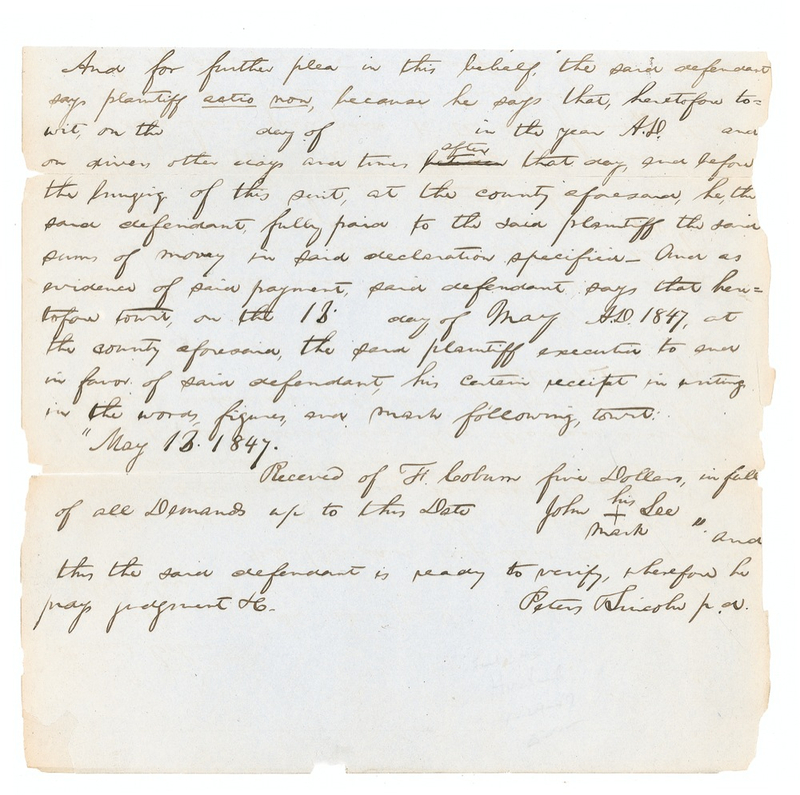 And for further plea in this behalf, the said defendant
says plaintiff actio non, because he says that, heretofore to=
wit, on the day of in the year A.D. and
on divers other days and times after that day, and before
the bringing of this suit, at the county aforesaid, he, the
said defendant, fully paid to the said plaintiff the said
sums of money in said declaration specified— And as
evidence of said payment, said defendant, says that here=
tofore towit, on the 13. day of May A.D. 1847, at
the county aforesaid, the said plaintiff executed to and
in favor of said defendant, his certain receipt in writing
in the words, figures, and mark following, towit:
"May 13. 1847.
Receved of H. Coburn five Dollars, in full
of all Demands up to this Date John his + mark Lee
" and
this the said defendant is ready to verify, wherefore he
prays judgment &c. Peters & Lincoln p. d.